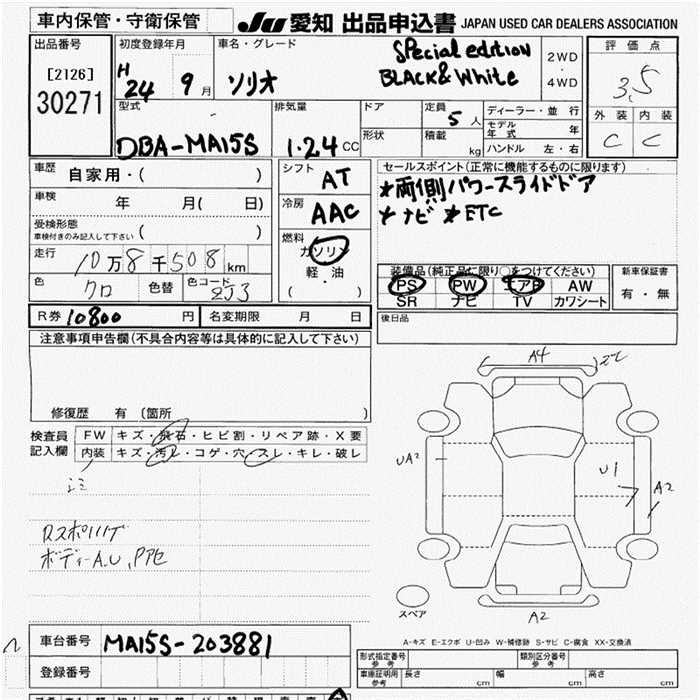 車内保管・守衛保管
JU 愛知 出品申込書 JAPAN USED CAR DEALERS ASSOCIATION
出品番号
[2126]
30271
初度登録年月
H24 9月
車名・グレード
ソリオ
Special edition
BLACK & White
2WD
・
4WD
評価点
3.5
外装 内装
C C
型式
DBA-MA15S
排気量
1.24 CC
ドア
形状
定員 5 人
積載 kg
ディーラー・並行
モデル年式 年
ハンドル 左・右
車歴 自家用・( )
車検 年 月( 日)
受検形態
車検付きのみ記入して下さい ( )
走行 10万8千508 km
色 クロ 色替 色コード 2J3
シフト AT
冷房 AAC
燃料
ガソリン
軽・油
( )
セールスポイント(正常に機能するものに限ります)
*両側パワースライドドア
*ナビ *ETC
装備品(純正品に限り○をつけてください)
PS PW エアB AW
SR ナビ TV カワシート
新車保証書
有・無
R券 10800 円 名変期限 月 日
後日品
注意事項申告欄(不具合内容等は具体的に記入して下さい)
修復歴 有 〔箇所 〕
検査員記入欄
FW キズ・飛石・ヒビ割・リペア跡・X要
内装 キズ・汚レ・コゲ・穴・スレ・キレ・破レ
Rスポイラー
ボディーA.U
A4
UA2
U1
A2
スペア
A2
A-キズ E-エクボ U-凹み W-補修跡 S-サビ C-腐食 XX-交換済
車台番号 MA15S-203881
登録番号
形式指定番号 参考
類別区分番号 参考
車庫証明用 参考 長さ cm 幅 cm 高さ cm